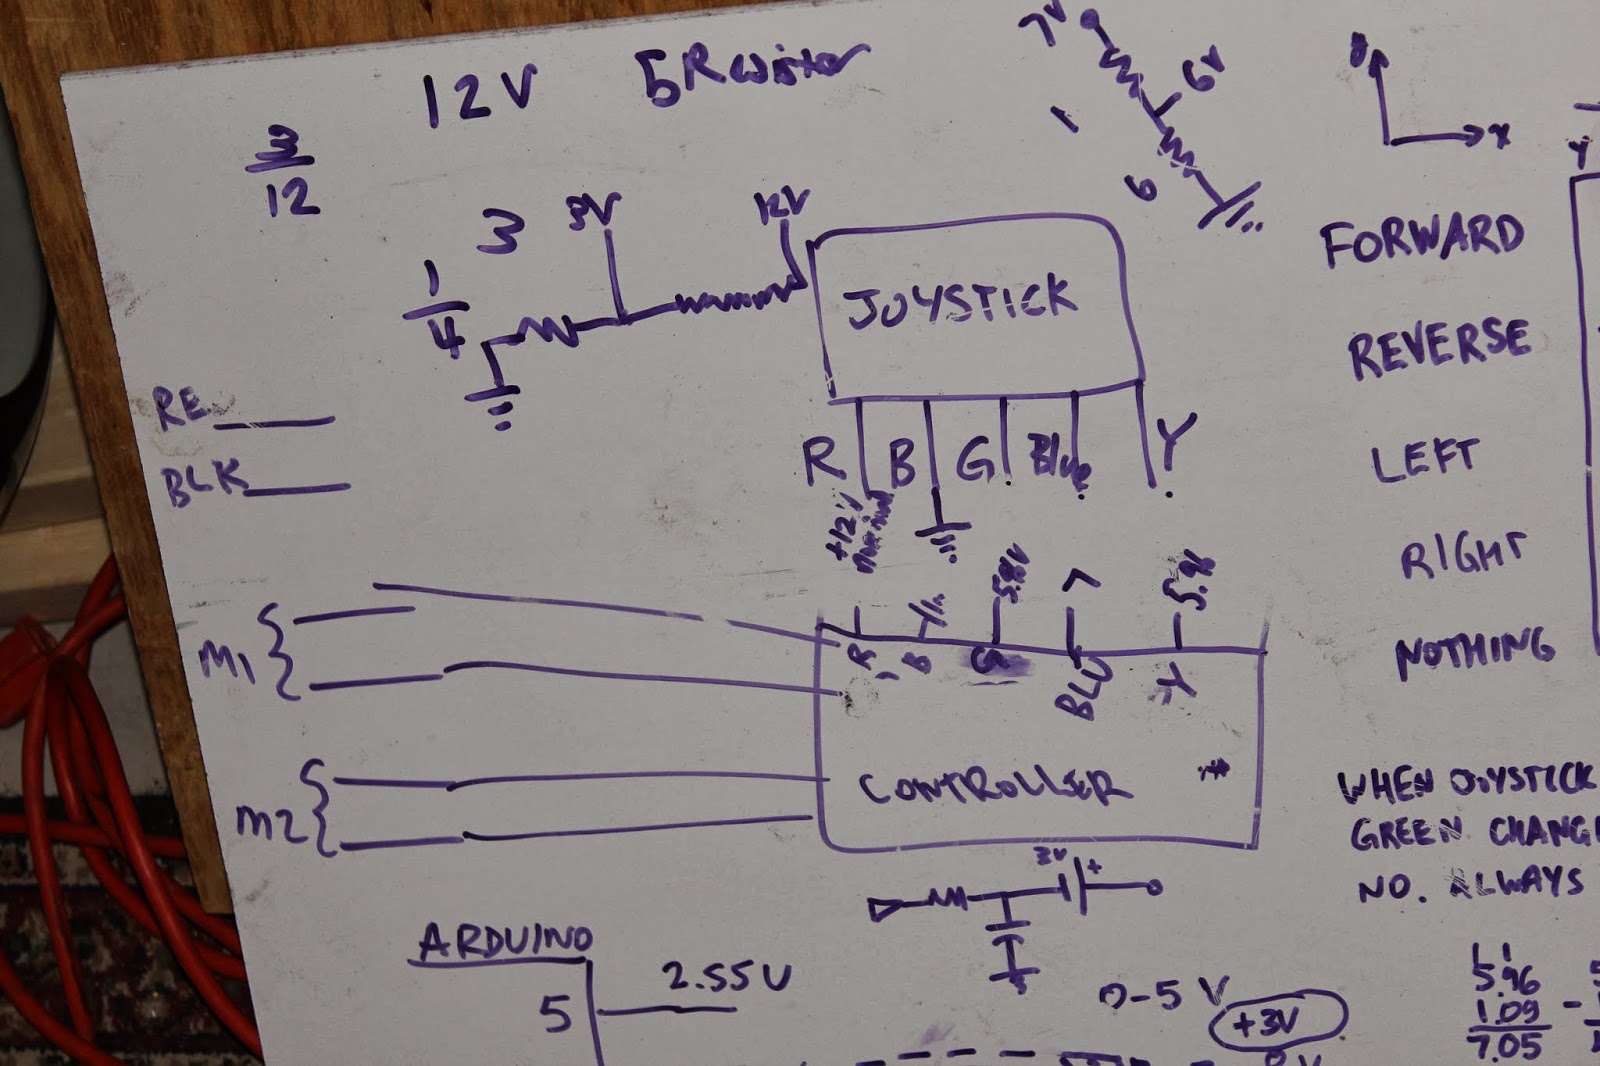 12V 5 Resistor
3
12
7V
6V
1
6
y
x
Y
3
3V
12V
1
4
JOYSTICK
R B G Blue Y
+12V
RE
BLK
5.96V
7
5.96
R B G BLU Y
M1
M2
CONTROLLER
3V
+
ARDUINO
5
2.55V
0-5 V
+3V
FORWARD
REVERSE
LEFT
RIGHT
NOTHING
WHEN JOYSTICK
GREEN CHANG
NO. ALWAYS
1 1
5.96
1.09
7.05
-